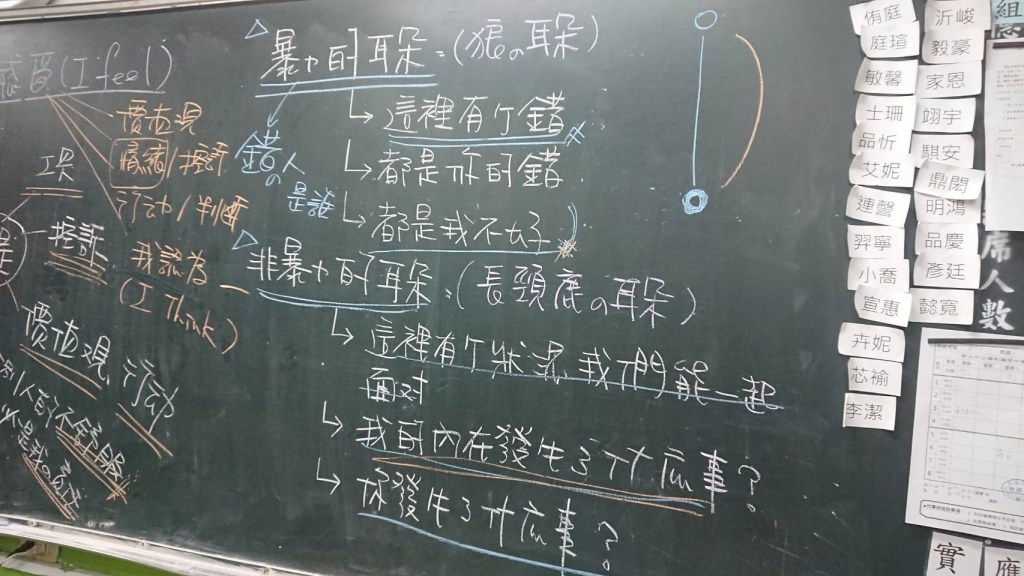 感受(I feel)
價值觀
工具
控訴
行动/判断
我認為
(I Think)
價值觀
行动
△暴力的耳朵=(狼の耳朵)
↳這裡有个錯
↳都是你的錯
↳都是我不好
錯の人
是誰
△非暴力的耳朵=(長頸鹿の耳朵)
↳這裡有个狀況,我們能一起
面对
↳我的內在發生了什広事?
↳你發生了什広事?
侑庭
庭瑄
敏馨
士珊
品忻
艾妮
連馨
羿寧
小喬
宣惠
卉妮
芯褕
李潔
沂峻
毅豪
家恩
翊宇
騏安
鼎閎
明鴻
品慶
彥廷
懿寬
組
席人數
實
應